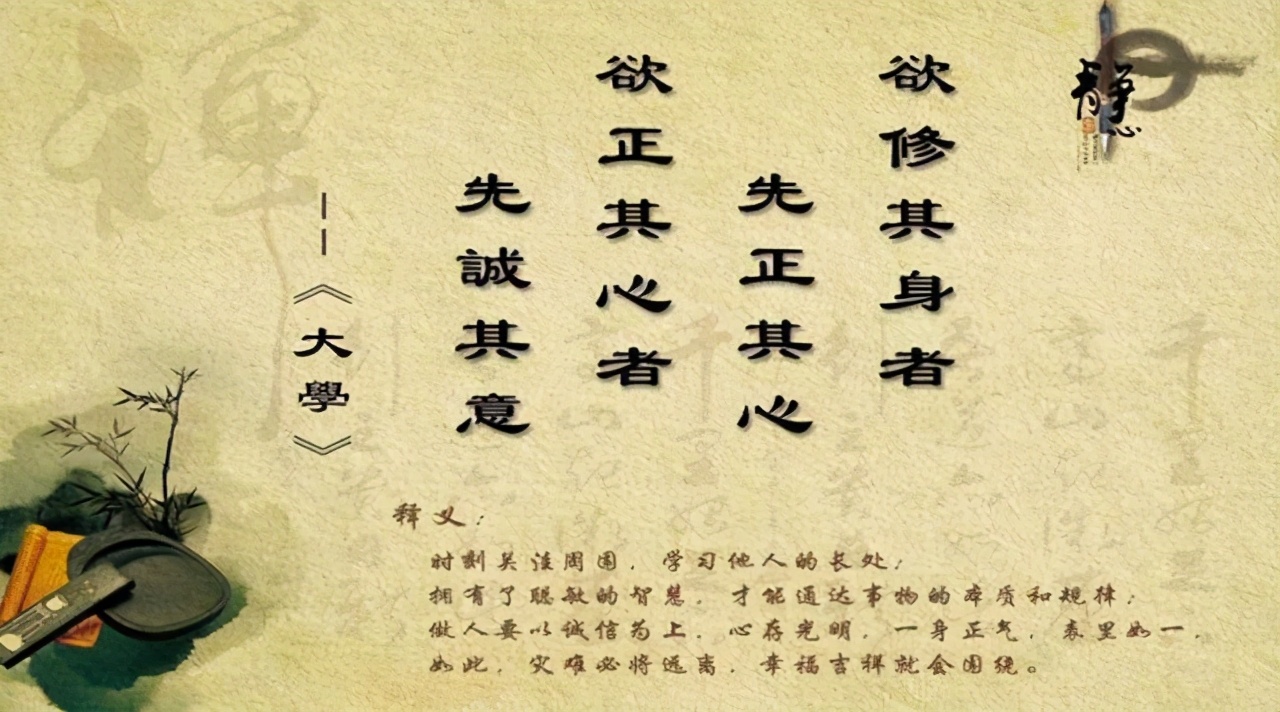 欲修其身者
先正其心
欲正其心者
先誠其意
——《大學》
静心
禪
释义：
时刻关注周围，学习他人的长处；
拥有了聪敏的智慧，才能通达事物的本质和规律；
做人要以诚信为上，心存光明，一身正气，表里如一，
如此，灾难必将远离，幸福吉祥就会围绕。